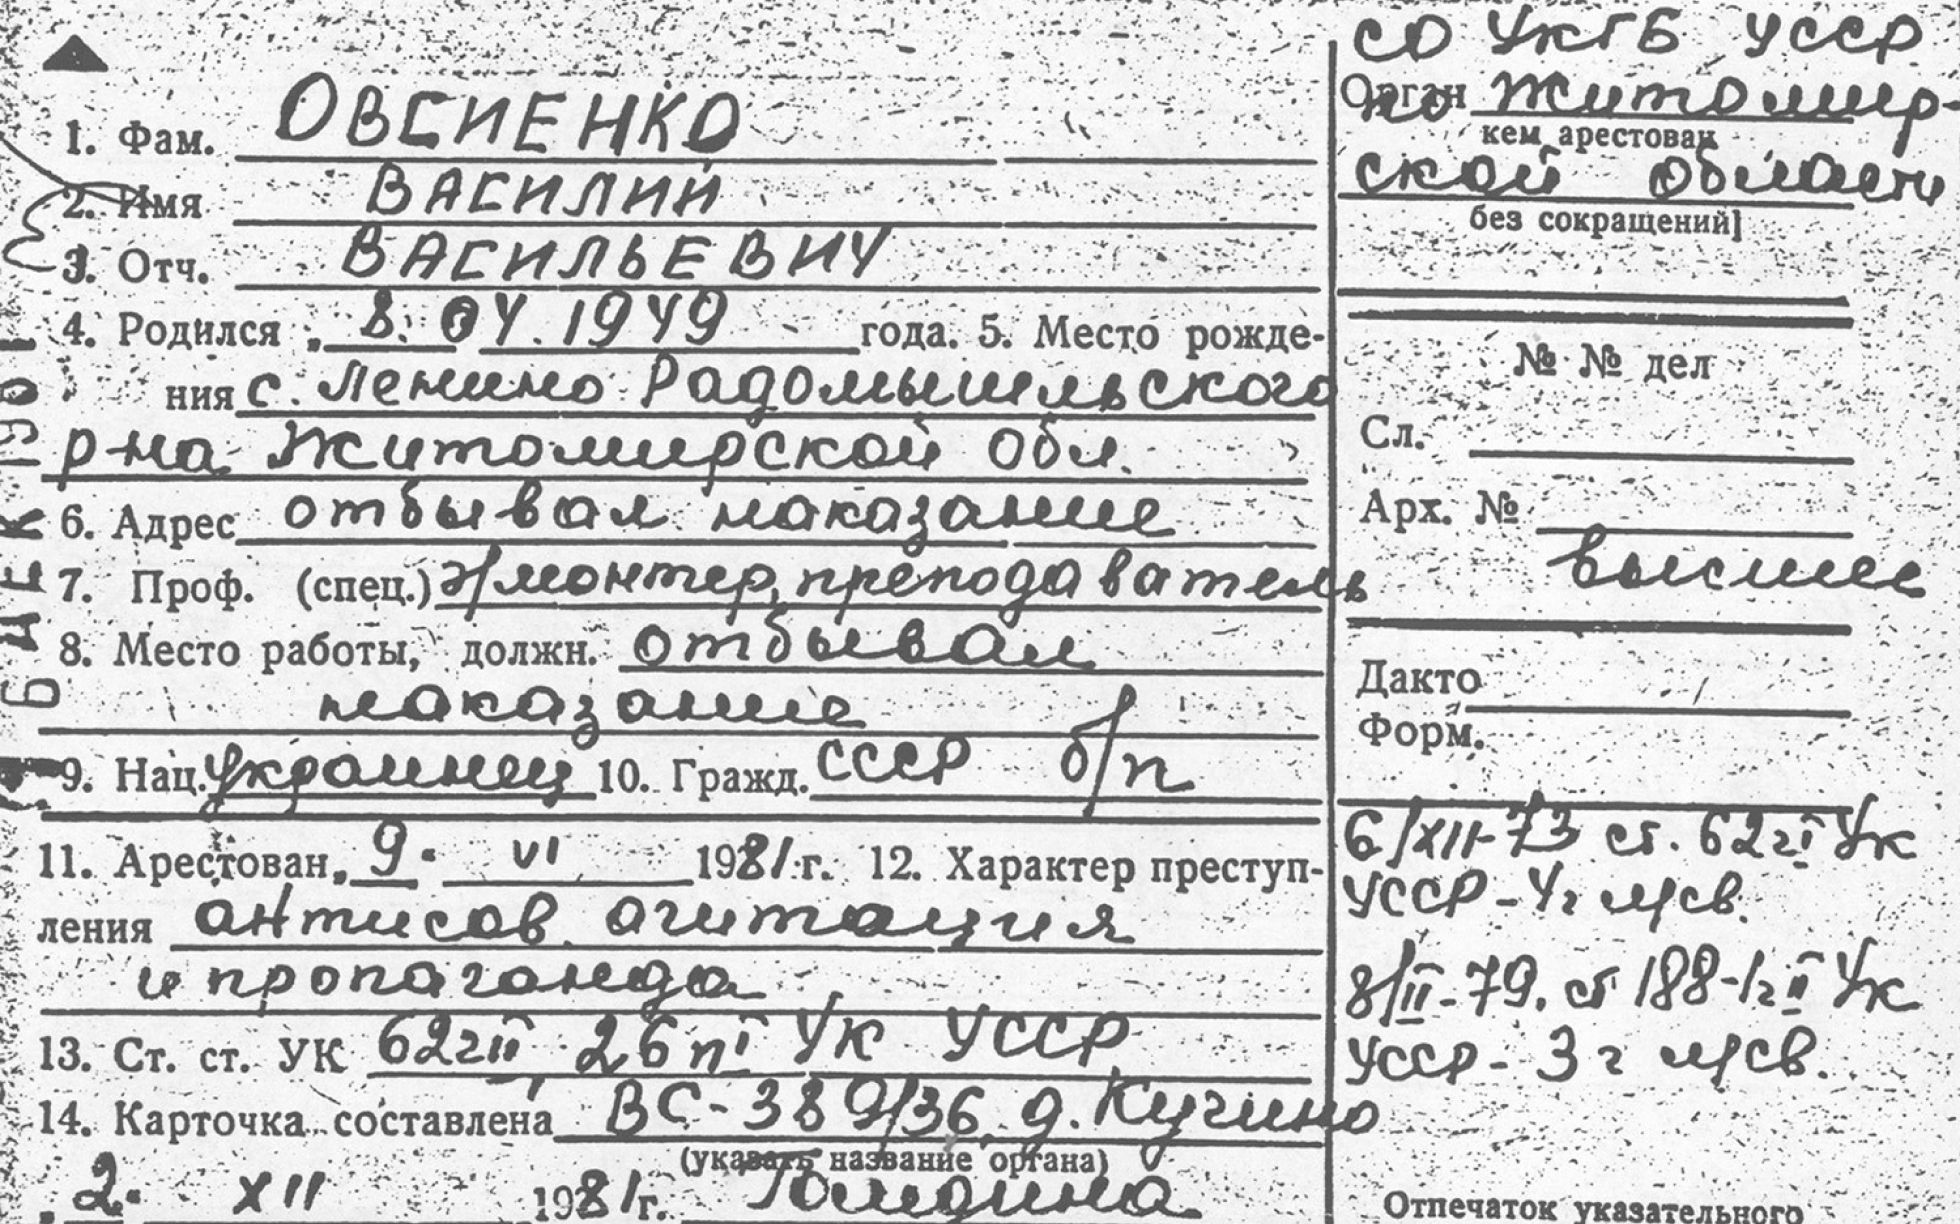 1. Фам. ОВСИЕНКО
2. Имя ВАСИЛИЙ
3. Отч. ВАСИЛЬЕВИЧ
4. Родился „ 8. 04. 1949 года. 5. Место рожде-
ния с. Ленино Радомышльского
р-на Житомирской обл.
6. Адрес отбывал наказание
7. Проф. (спец.) э/монтер, преподаватель
8. Место работы, должн. отбывал
наказание
9. Нац. украинец 10. Гражд. СССР б/п
11. Арестован „ 9. VI 1981 г. 12. Характер преступ-
ления антисов. агитация
и пропаганда
13. Ст. ст. УК 62 ч II, 26 п I УК УССР
14. Карточка составлена ВС-389/36, д. Кучино
(указать название органа)
„ 2. XII 1981 г.
СО УКГБ УССР
Орган по Житомир-
кем арестован
ской области
без сокращений]
№ № дел
Сл.
Арх. №
высшее
Дакто
Форм.
6/XII-73 ст. 62 ч I УК
УССР - 4 г л/св.
8/II-79. ст 188-1 ч II УК
УССР - 3 г л/св.
Отпечаток указательного